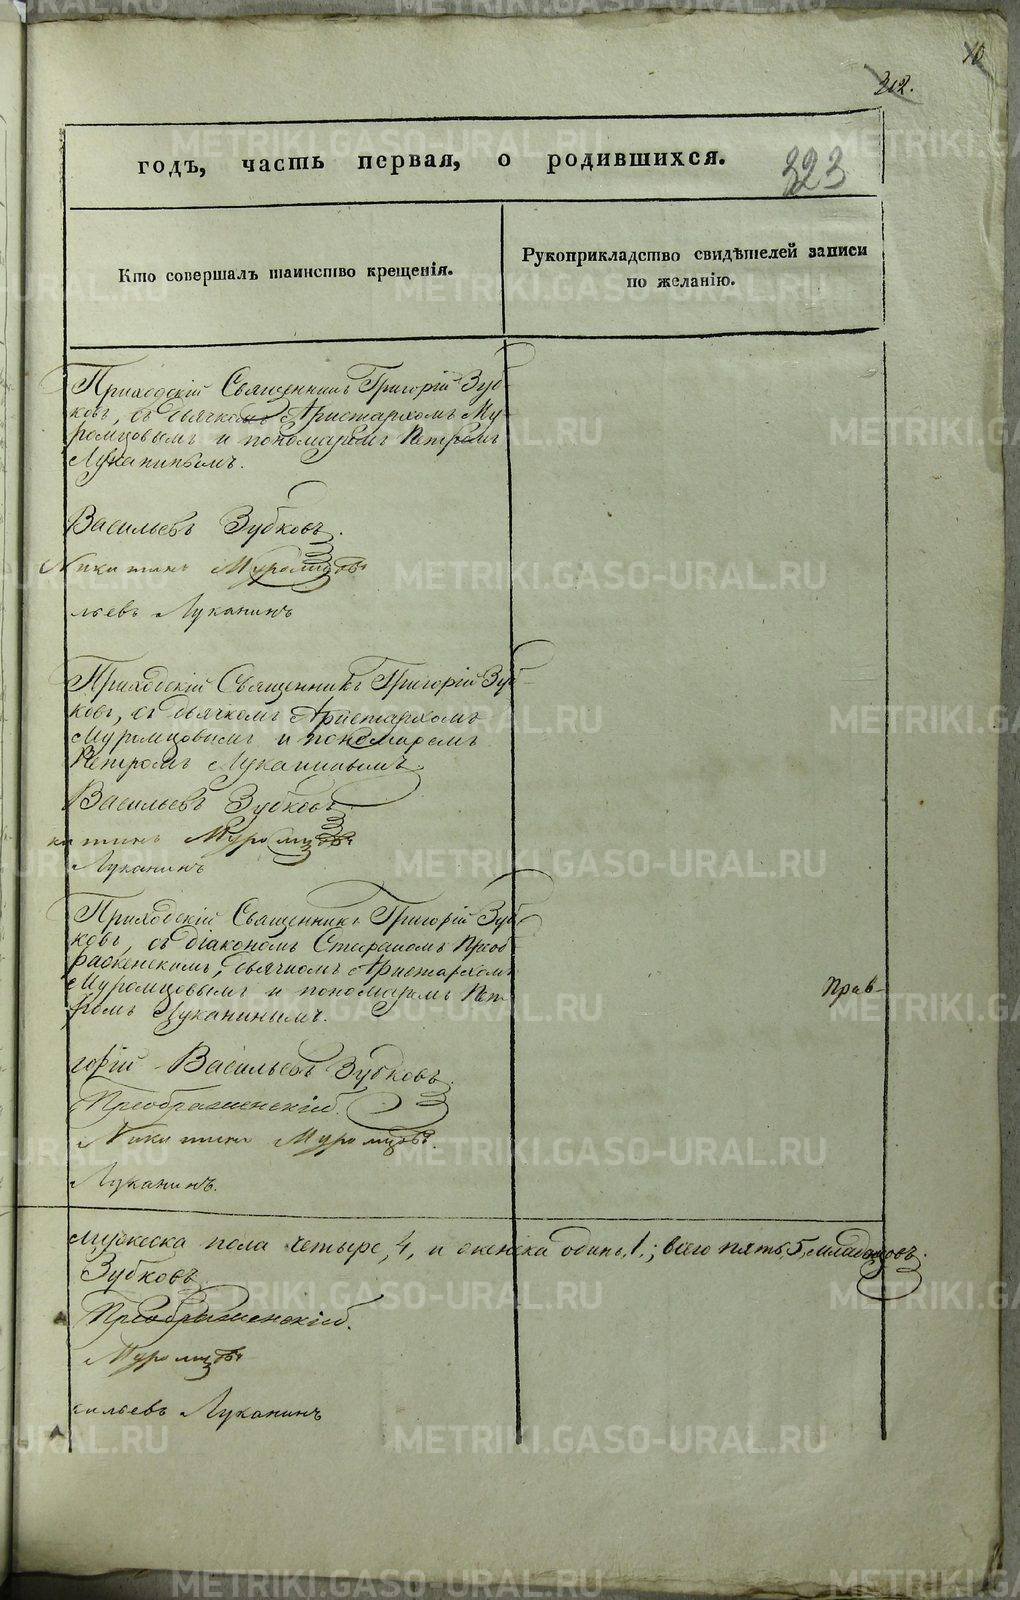 10
312.
годъ, часть первая, о родившихся.
323
Кто совершалъ таинство крещенія.
Рукоприкладство свидѣтелей записи
по желанію.
Приходскій Священникъ Григорій Зуб-
ковъ, съ дьячкомъ Аристархомъ Му-
ромцовымъ и пономаремъ Петромъ
Луканинымъ.
Васильевъ Зубковъ.
Никитинъ Муромцовъ
льевъ Луканинъ
Приходскій Священникъ Григорій Зуб-
ковъ, съ дьячкомъ Аристархомъ
Муромцовымъ и пономаремъ
Петромъ Луканинымъ.
Васильевъ Зубковъ.
китинъ Муромцовъ
Луканинъ
Приходскій Священникъ Григорій Зуб-
ковъ, съ діакономъ Стефаномъ Преоб-
раженскимъ, дьячкомъ Аристархомъ
Муромцовымъ и пономаремъ Пет-
ромъ Луканинымъ.
Прав-
горій Васильевъ Зубковъ.
Преображенскій.
Никитинъ Муромцовъ.
Луканинъ.
мужеска пола четыре, 4, и женска одинъ, 1,; всего пять, 5, младенцовъ.
Зубковъ
Преображенскій.
Муромцовъ
сильевъ Луканинъ
METRIKI.GASO-URAL.RU